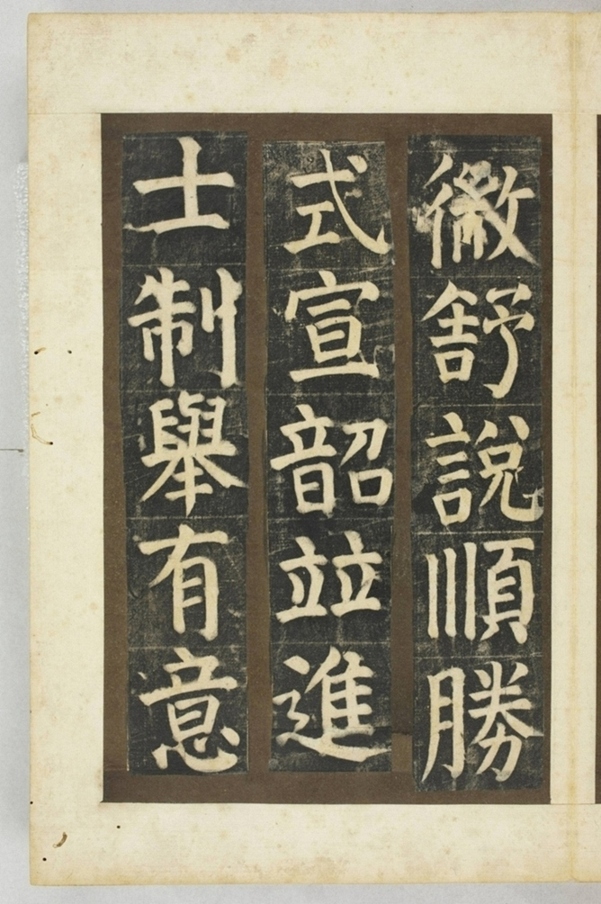 徽舒說順勝
式宣韶並進
士制舉有意